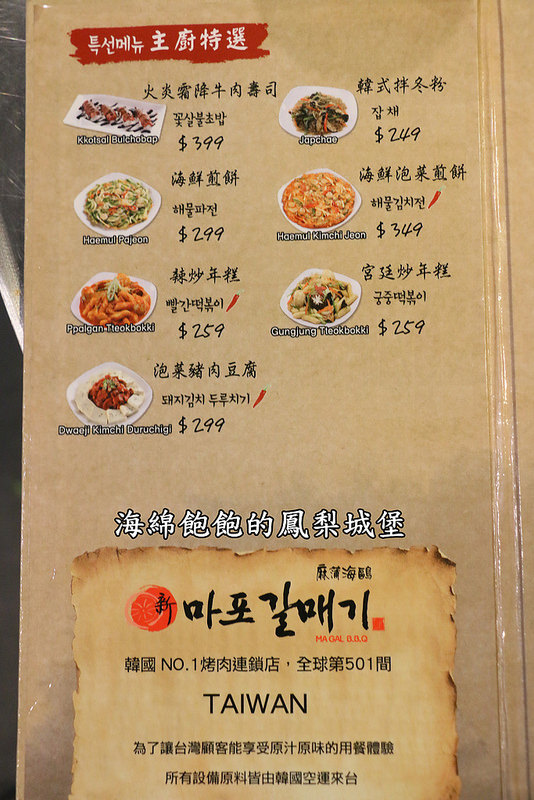 특선메뉴 主廚特選
火炎霜降牛肉壽司
꽃살불초밥
Kkotsal Bulchobap
$399
韓式拌冬粉
잡채
Japchae
$249
海鮮煎餅
해물파전
Haemul Pajeon
$299
海鮮泡菜煎餅
해물김치전
Haemul Kimchi Jeon
$349
辣炒年糕
빨간떡볶이
Ppalgan Tteokbokki
$259
宮廷炒年糕
궁중떡볶이
Gungjung Tteokbokki
$259
泡菜豬肉豆腐
돼지김치 두루치기
Dwaeji Kimchi Duruchigi
$299
海綿飽飽的鳳梨城堡
麻蒲海鷗
新 마포갈매기
MAGAL B.B.Q
韓國 NO.1烤肉連鎖店，全球第501間
TAIWAN
為了讓台灣顧客能享受原汁原味的用餐體驗
所有設備原料皆由韓國空運來台